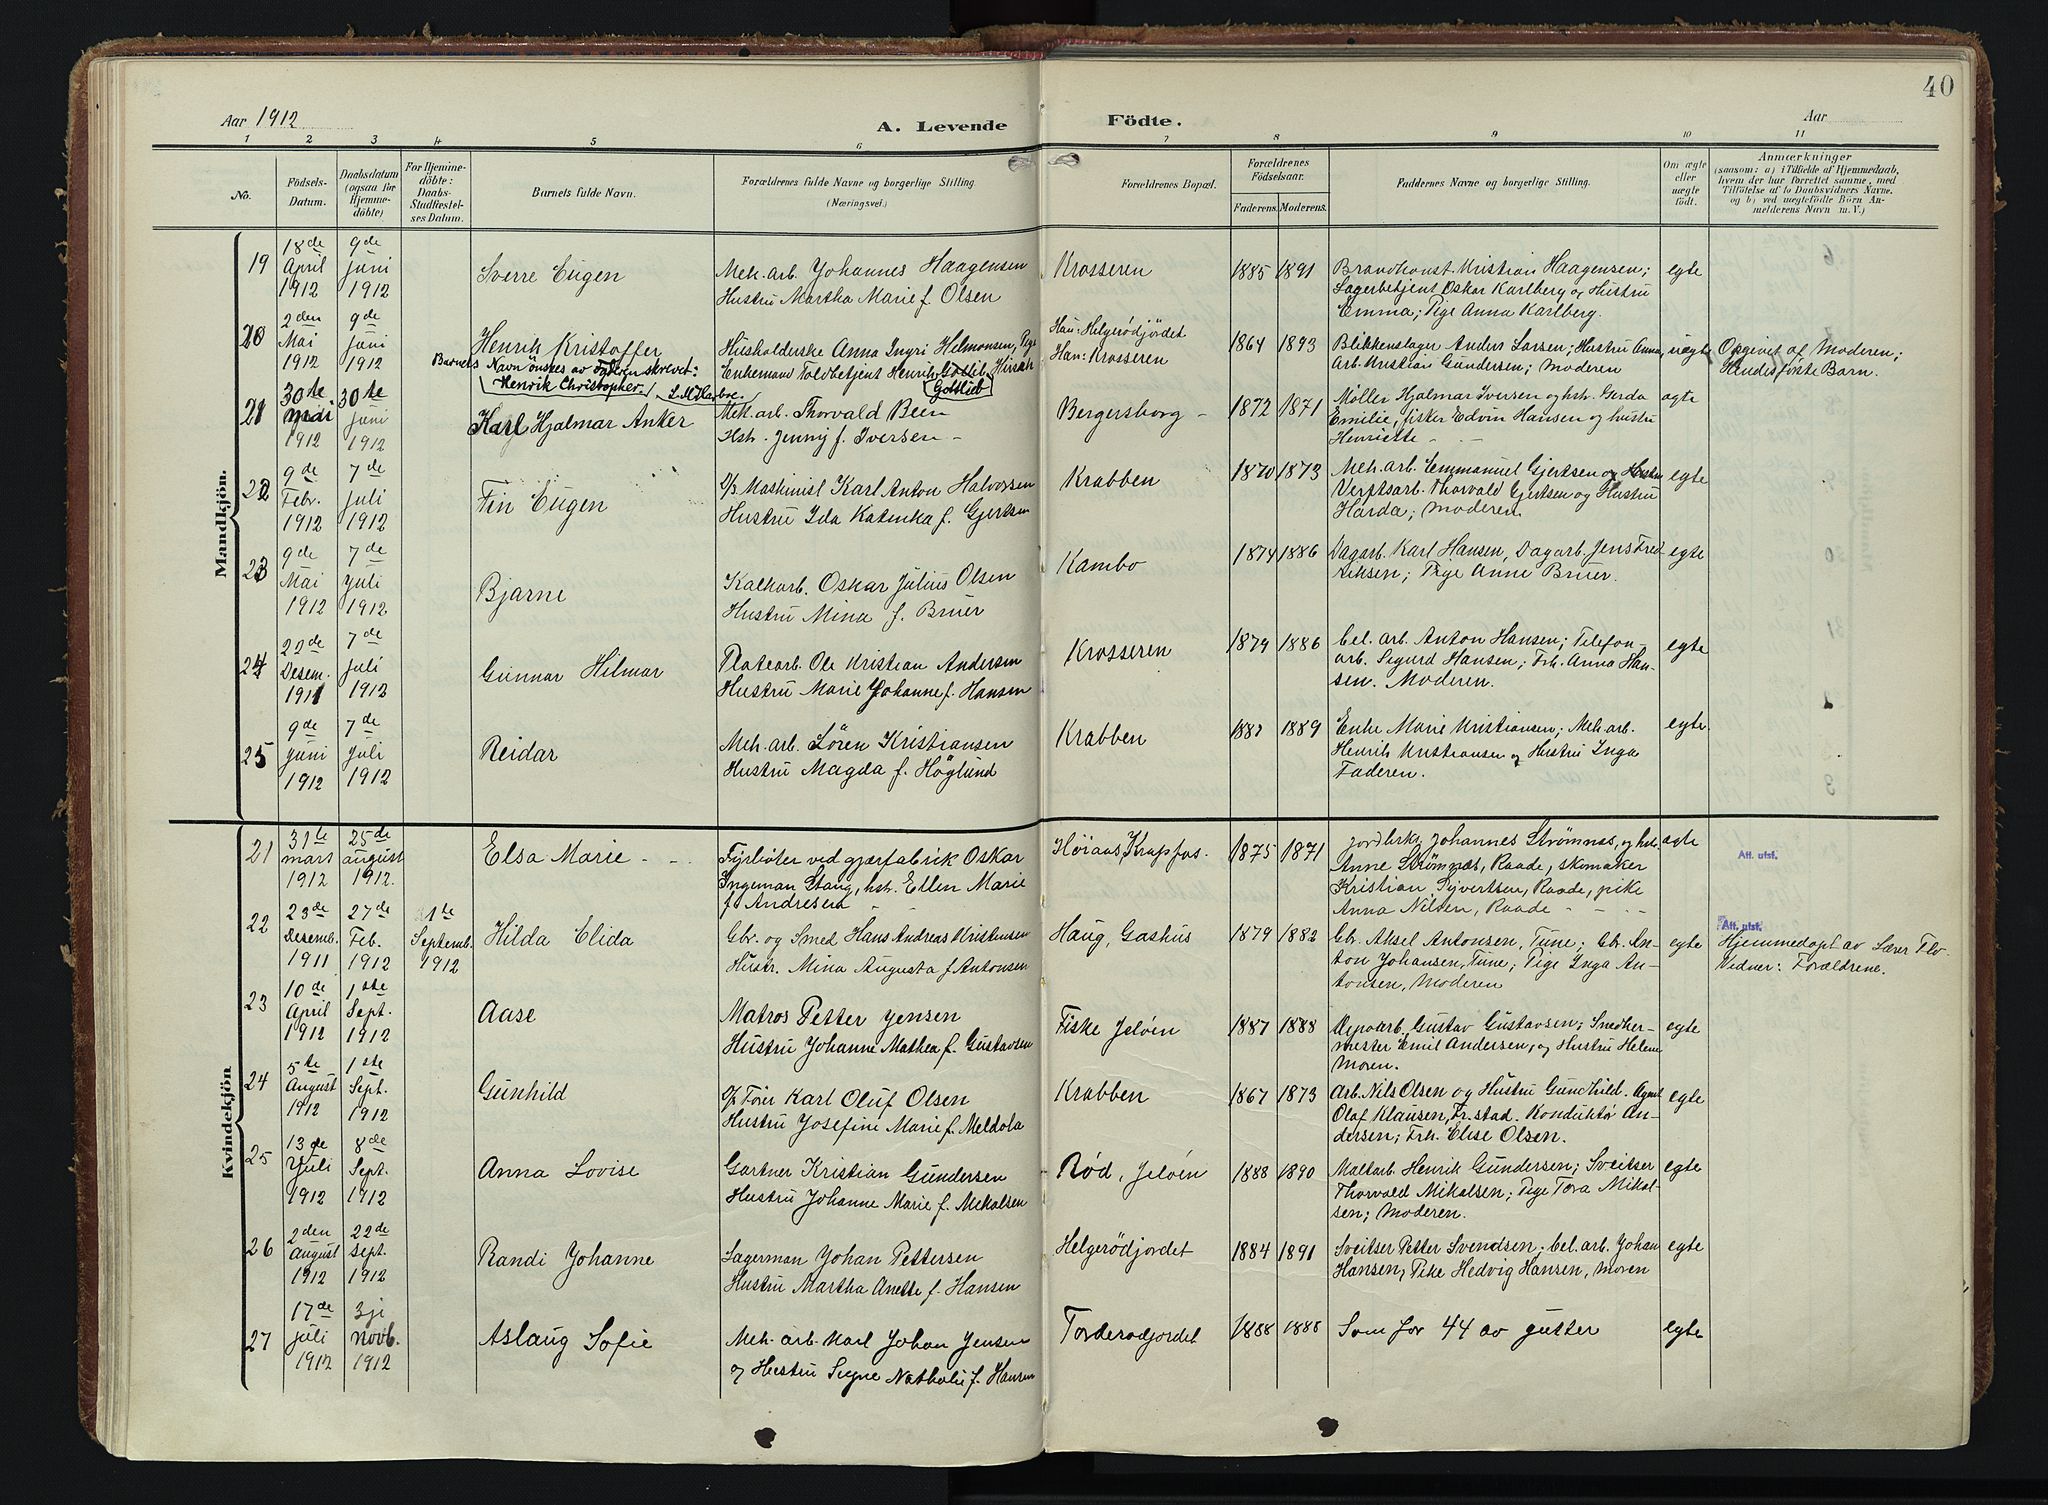 40
Aar 1912
A. Levende Födte.
Aar
1 2 3 4 5 6 7 8 9 10 11
No.
Födsels-Datum.
Daabsdatum (ogsaa för Hjemmedöbte)
For Hjemmedöbte: Daabs-Stadfæstelses Datum.
Barnets fulde Navn.
Forældrenes fulde Navne og borgerlige Stilling. (Næringsvei.)
Forældrenes Bopæl.
Forældrenes Födselsaar.
Faderens. Moderens.
Faddernes Navne og borgerlige Stilling.
Om ægte eller uægte födt.
Anmærkninger
(saasom: a) i Tilfælde af Hjemmedaab, hvem der har forrettet samme, med Tilföielse af to Daabsvidners Navne, og b) ved uægtefödte Börn Anmelderens Navn m. V.)
Mandkjön.
19 18de April 1912 9de Juni 1912 Sverre Eugen
Mek. arb. Johannes Haagensen
Hustru Martha Marie f. Olsen
Krosseren 1885 1891
Brandkonst. Kristian Haagensen;
Lagerbetjent Oskar Karlberg og Hustru
Emma; Pige Anna Karlberg.
egte
20 2den Mai 1912 9de Juni 1912 Henrik Kristoffer
Barnets Navn önskes av
skrevet:
Henrik Christopher.
Husholderske Anna Ingri Hilmonsen, Pige
Enkemand Toldbetjent Henrik Gotlieb
Gottlieb
Hun: Helgerödjördet
Han: Krosseren
1864 1893
Blikkenslager Anders Larsen; Hustru Anna,
Arb. Kristian Gundersen; Moderen
uegte
Opgivet af Moderen;
Hendes förste Barn.
21 30te mai 1912 30te juni 1912 Karl Hjalmar Anker
Mek. arb. Thorvald Been
Hstr. Jenny f. Iversen -
Bergersborg - 1872 1871
Møller Hjalmar Iversen og hstr. Gerda
Emilie, fisker Edvin Hansen og hustru
Henriette - -
ægte
22 9de Febr. 1912 7de Juli 1912 Fin Eugen
D/s Maskinist Karl Anton Halvorsen
Hustru Ida Katinka f. Gjertsen
Krabben 1870 1873
Mek. arb. Emmanuel Gjertsen og Hustru
Verftsarb. Thorvald Gjertsen og Hustru
Harda; Moderen.
egte
23 9de Mai 1912 7de Juli 1912 Bjarne
Kalkarb. Oskar Julius Olsen
Hustru Mina f. Bruer
Kambo 1874 1886
Dagarb. Karl Hansen, Dagarb. Jens Fred
riksen; Pige Anne Bruer.
egte
24 22de Desem. 1911 7de Juli 1912 Gunnar Hilmar
Platearb. Ole Kristian Andersen
Hustru Marie Johanne f. Hansen
Krosseren 1879 1886
Cel. arb. Anton Hansen; Telefon-
arb. Sigurd Hansen; Frk. Anna Han-
sen. Moderen.
egte
25 9de Juni 1912 7de Juli 1912 Reidar
Mek. arb. Sören Kristiansen
Hustru Magda f. Höglund
Krabben 1889
Enke Marie Kristiansen; Mek. arb.
Henrik Kristiansen og Hustru Inga
Faderen.
egte
Kvindekjön
21 31te mars 1912 25de august 1912. Elsa Marie - -
Fyrböter ved gjærfabrik Oskar
Ingeman Stang, hstr. Ellen Marie
f. Andresen -
1875 1871
jordbrk. Johannes Strömnæs, og hstr.
Anne Strömnæs, Raade, skomaker
Kristian Syvertsen, Raade, pike
Anna Nilsen, Raade - -
ægte
Att. utst.
22 23de Desemb. 1911 27de Feb. 1912 21te Septemb. 1912 Hilda Elida
Gbr. og Smed Hans Andreas Kristensen
Hustr. Mina Augusta f. Antonsen
Haug, Gashus 1879 1882
Gbr. Aksel Antonsen, Tune; Gbr. An-
ton Johansen, Tune; Pige Inga An-
tonsen, Moderen
egte
Att. utst.
Hjemmedöpt av Lærer
Vidner: Forældrene.
23 10de April 1912 1ste Sept. 1912 Aase
Matros Petter Jensen
Hustru Johanne Mathea f. Gustavsen
Fiske Jelöen 1887 1888
Depoarb. Gustav Gustavsen; Snedker-
mester Emil Andersen, og Hustru Helene
Moren.
egte
24 5te August 1912 1ste Sept. 1912 Gunhild
Karl Oluf Olsen
Hustru Josefine Marie f. Meldola
Krabben 1867 1873
Arb. Nils Olsen og Hustru Gundhild. Agent
Olaf Klausen, Fr.stad. Konduktör An-
dersen; Frk. Elise Olsen.
egte
25 13de Juli 1912 8de Sept. 1912 Anna Lovise
Gartner Kristian Gundersen
Hustru Johanne Marie f. Mikalsen
Rød, Jeløen 1888 1890
Maltarb. Henrik Gundersen; Sveitser
Thorvald Mikalsen; Pige Tora Mikal-
sen; Moderen.
egte
26 2den August 1912 22de Sept. 1912 Randi Johanne
Lagerman Johan Pettersen
Hustru Martha Anette f. Hansen
Helgerödjordet 1884 1891
Sveitser Petter Svendsen; Cel. arb. Johan
Hansen, Pike Hedvig Hansen, Moren
egte
27 17de Juli 1912 3je Novb. 1912 Aslaug Sofie
Mek. arb. Karl Johan Jensen
og Hustru Signe Nathalie f. Hansen
Torderødjordet 1888 1888
Som for 44 av gutter
egte